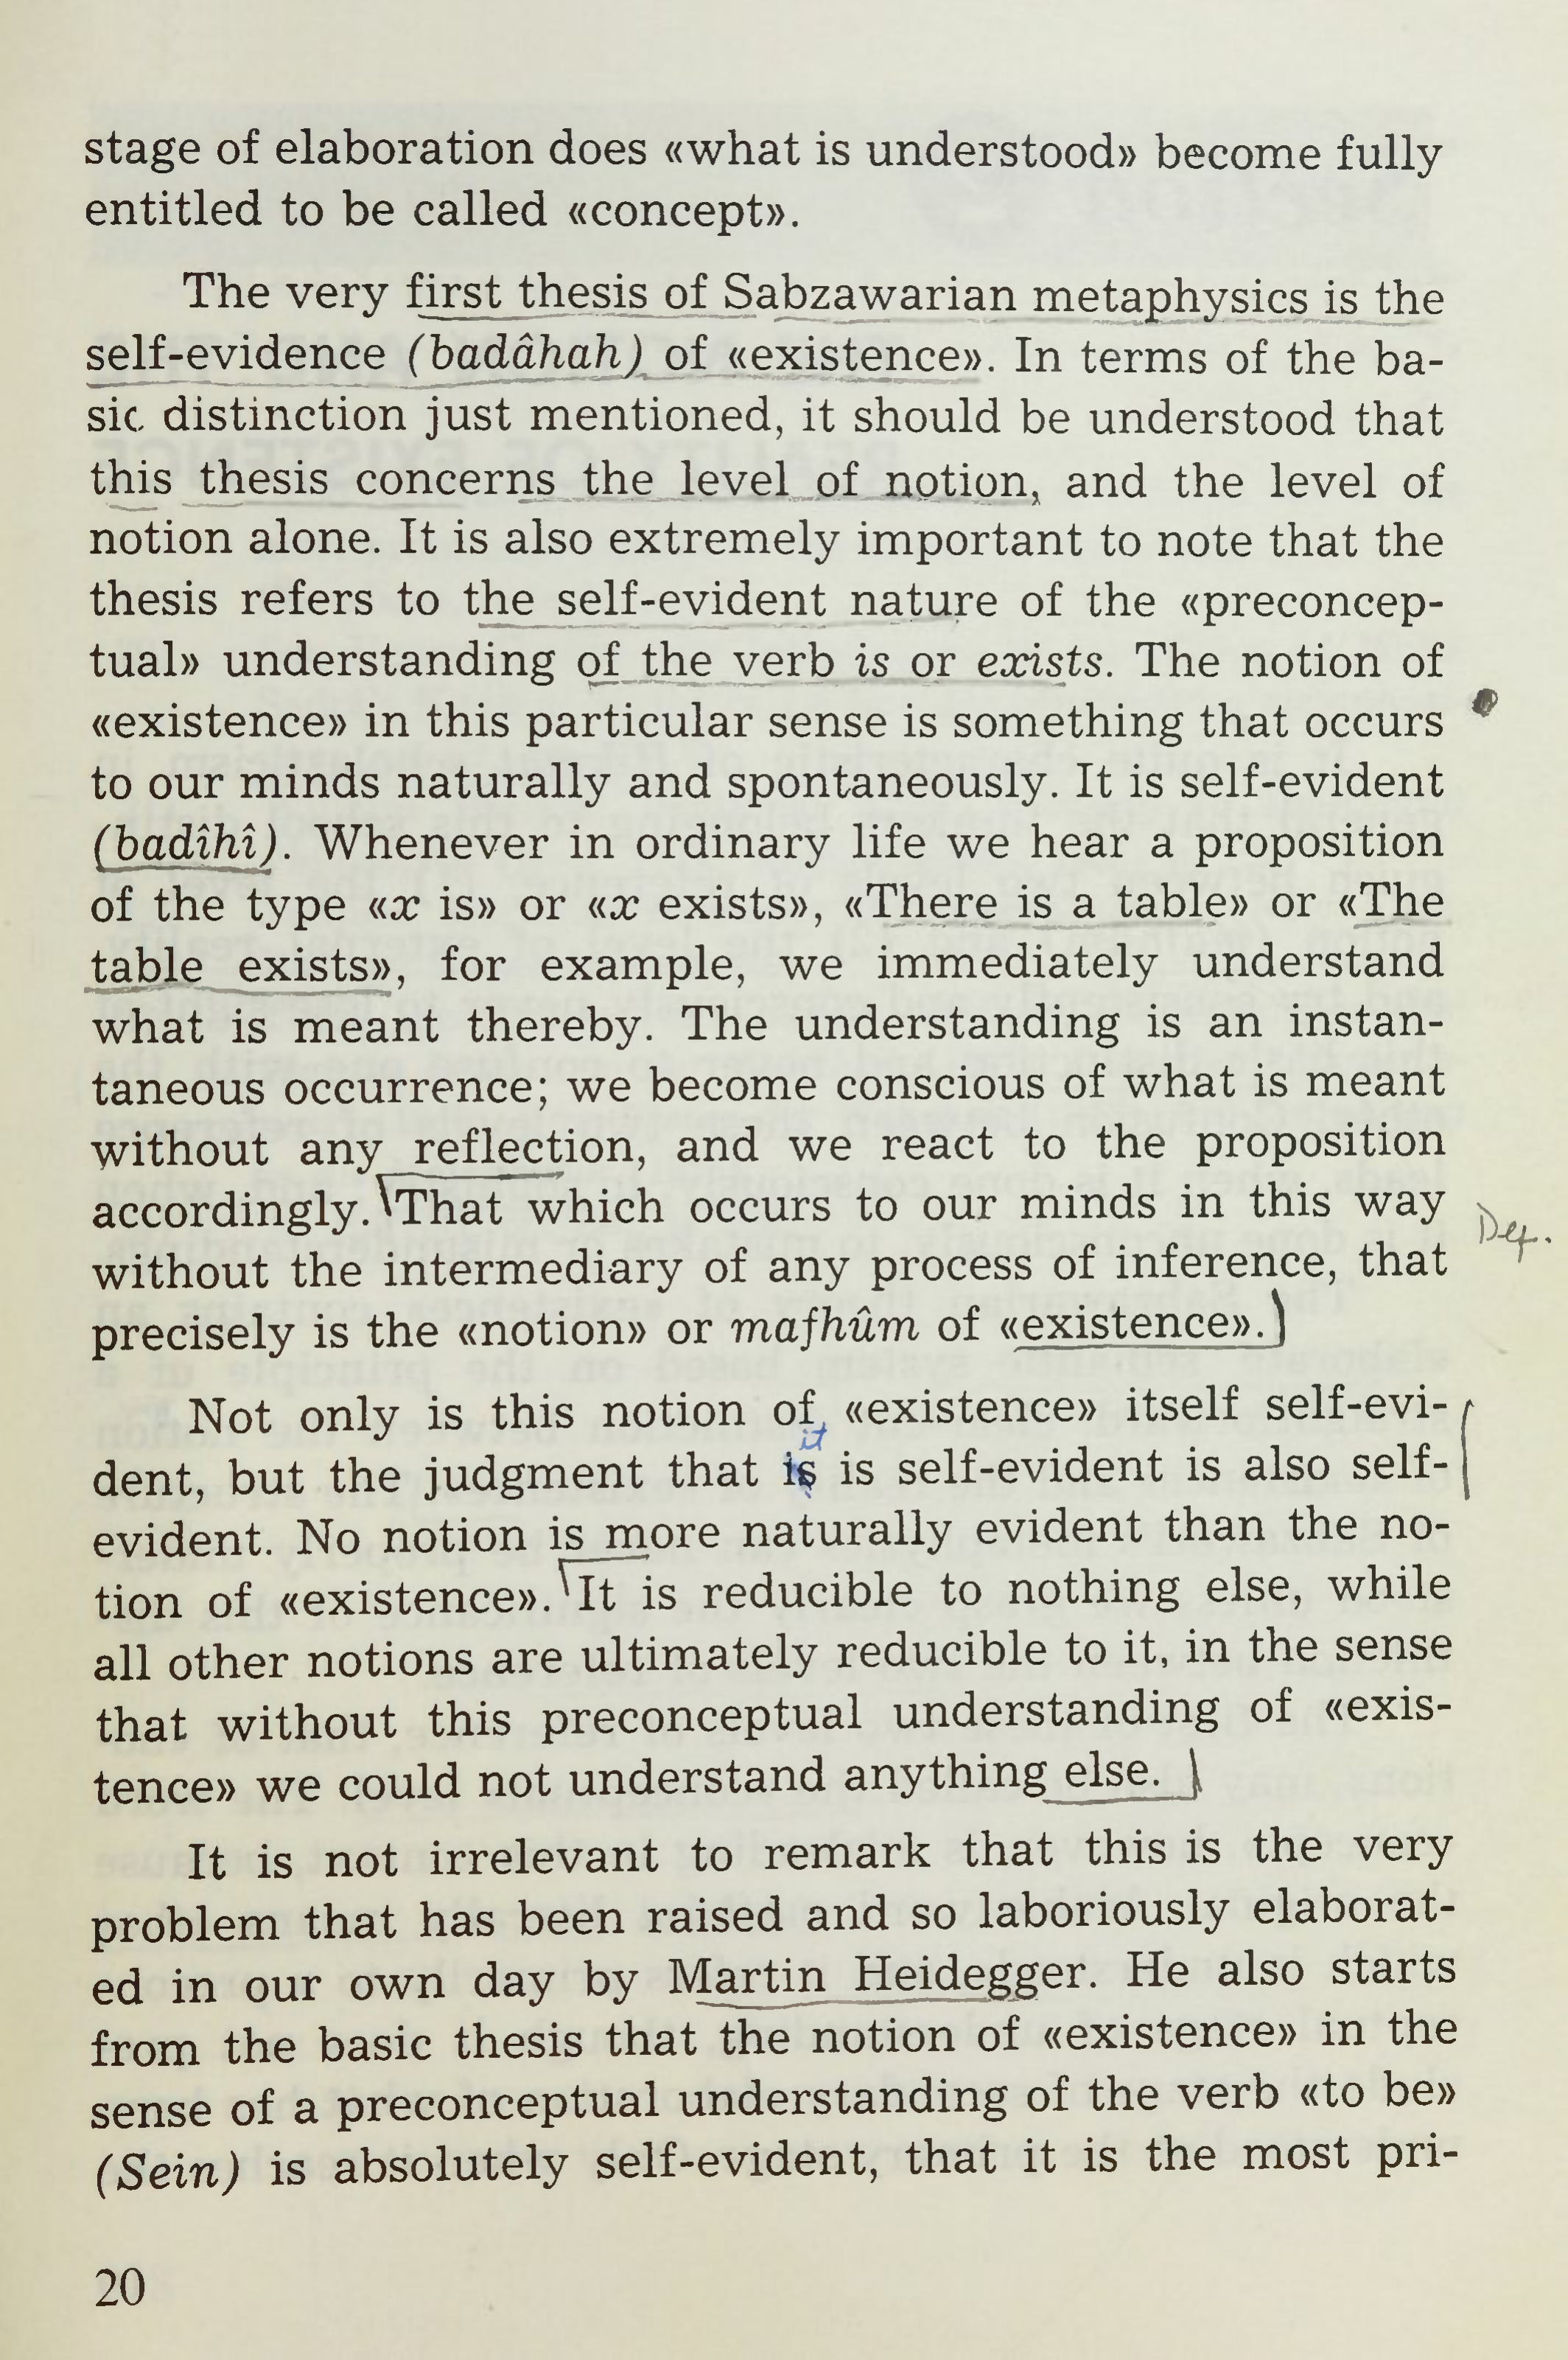 stage of elaboration does «what is understood» become fully
entitled to be called «concept».
The very first thesis of Sabzawarian metaphysics is the
self-evidence (badâhah) of «existence». In terms of the ba-
sic distinction just mentioned, it should be understood that
this thesis concerns the level of notion, and the level of
notion alone. It is also extremely important to note that the
thesis refers to the self-evident nature of the «preconcep-
tual» understanding of the verb is or exists. The notion of
«existence» in this particular sense is something that occurs
to our minds naturally and spontaneously. It is self-evident
(badîhî). Whenever in ordinary life we hear a proposition
of the type «x is» or «x exists», «There is a table» or «The
table exists», for example, we immediately understand
what is meant thereby. The understanding is an instan-
taneous occurrence; we become conscious of what is meant
without any reflection, and we react to the proposition
accordingly. That which occurs to our minds in this way
Def.
without the intermediary of any process of inference, that
precisely is the «notion» or mafhûm of «existence».
Not only is this notion of «existence» itself self-evi-
it
dent, but the judgment that is is self-evident is also self-
evident. No notion is more naturally evident than the no-
tion of «existence». It is reducible to nothing else, while
all other notions are ultimately reducible to it, in the sense
that without this preconceptual understanding of «exis-
tence» we could not understand anything else.
It is not irrelevant to remark that this is the very
problem that has been raised and so laboriously elaborat-
ed in our own day by Martin Heidegger. He also starts
from the basic thesis that the notion of «existence» in the
sense of a preconceptual understanding of the verb «to be»
(Sein) is absolutely self-evident, that it is the most pri-
20